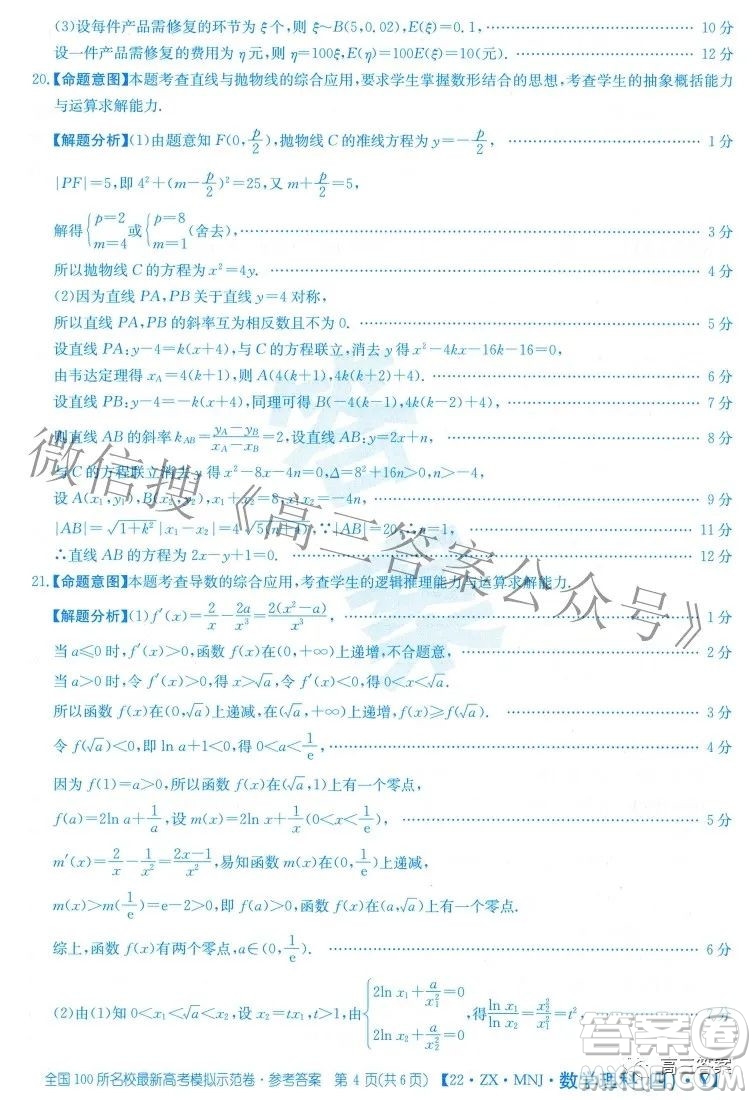 (3)设每件产品需修复的环节为ξ个,则ξ~B(5,0.02),E(ξ)=0.1, …… 10分
设一件产品需修复的费用为η元,则η=100ξ,E(η)=100E(ξ)=10(元). …… 12分
20.【命题意图】本题考查直线与抛物线的综合应用,要求学生掌握数形结合的思想,考查学生的抽象概括能力
与运算求解能力.
【解题分析】(1)由题意知F(0,p/2),抛物线C的准线方程为y=-p/2, …… 1分
|PF|=5,即4²+(m-p/2)²=25,又m+p/2=5,
解得{p=2 m=4 或{p=8 m=1 (舍去), …… 3分
所以抛物线C的方程为x²=4y. …… 4分
(2)因为直线PA,PB关于直线y=4对称,
所以直线PA,PB的斜率互为相反数且不为0. …… 5分
设直线PA:y-4=k(x+4),与C的方程联立,消去y得x²-4kx-16k-16=0,
由韦达定理得x_A=4(k+1),则A(4(k+1),4k(k+2)+4). …… 6分
设直线PB:y-4=-k(x+4),同理可得B(-4(k-1),4k(k-2)+4).
则直线AB的斜率k_AB=(y_A-y_B)/(x_A-x_B)=2,设直线AB:y=2x+n, …… 8分
与C的方程联立消去y得x²-8x-4n=0,Δ=8²+16n>0,n>-4.
设A(x₁,y₁),B(x₂,y₂), …… 9分
|AB|=√(1+k²)|x₁-x₂|=4√5(4+n),∵|AB|=20,∴n=1, …… 11分
∴直线AB的方程为2x-y+1=0. …… 12分
21.【命题意图】本题考查导数的综合应用,考查学生的逻辑推理能力与运算求解能力.
【解题分析】(1)f′(x)=2/x-2a/x³=2(x²-a)/x³, …… 1分
当a≤0时,f′(x)>0,函数f(x)在(0,+∞)上递增,不合题意, …… 2分
当a>0时,令f′(x)>0,得x>√a,令f′(x)<0,得0<x<√a,
所以函数f(x)在(0,√a)上递减,在(√a,+∞)上递增,f(x)≥f(√a). …… 3分
令f(√a)<0,即ln a+1<0,得0<a<1/e, …… 4分
因为f(1)=a>0,所以函数f(x)在(√a,1)上有一个零点,
f(a)=2ln a+1/a,设m(x)=2ln x+1/x(0<x<1/e), …… 5分
m′(x)=2/x-1/x²=(2x-1)/x²,易知函数m(x)在(0,1/e)上递减,
m(x)>m(1/e)=e-2>0,所以函数f(x)在(a,√a)上有一个零点.
综上,函数f(x)有两个零点,a∈(0,1/e). …… 6分
(2)由(1)知0<x₁<√a<x₂,设x₂=tx₁,t>1,由{2ln x₁+a/x₁²=0 2ln x₂+a/x₂²=0,得ln x₁/ln x₂=x₂²/x₁²=t²,
全国100所名校最新高考模拟示范卷·参考答案 第4页(共6页)【22·ZX·MNJ·数学理科(四)·Y】
微信搜《高三答案公众号》
答案
高三答案
答案圈
MXQE.COM